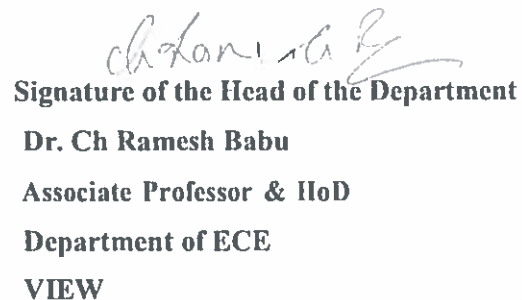 Signature of the Head of the Department
Dr. Ch Ramesh Babu
Associate Professor & HoD
Department of ECE
VIEW